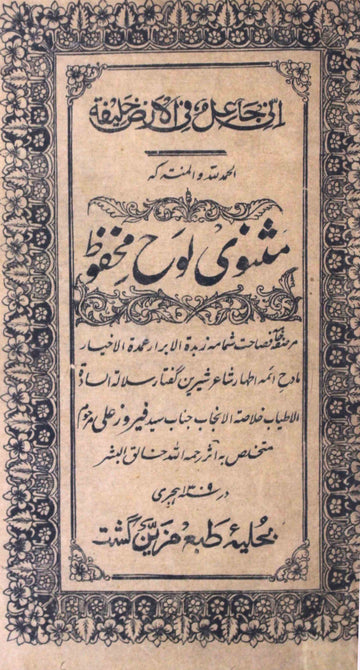 انی جاعل فی الارض خلیفة
الحمد للہ والمنتہ کہ
مثنوی لوح محفوظ
مصنفہ فصاحت شمامہ زبدة الابرار عمدة الاخیار
مادح ائمہ اطہار شاعر شیرین گفتار سلالة السادة
الاطیاب خلاصة الانجاب جناب سید فیروز علی مرحوم
متخلص بہ اثر رحمہ اللہ خالق البشر
در ۱۳۰۹ ہجری
بحلیۂ طبع مزین گشت